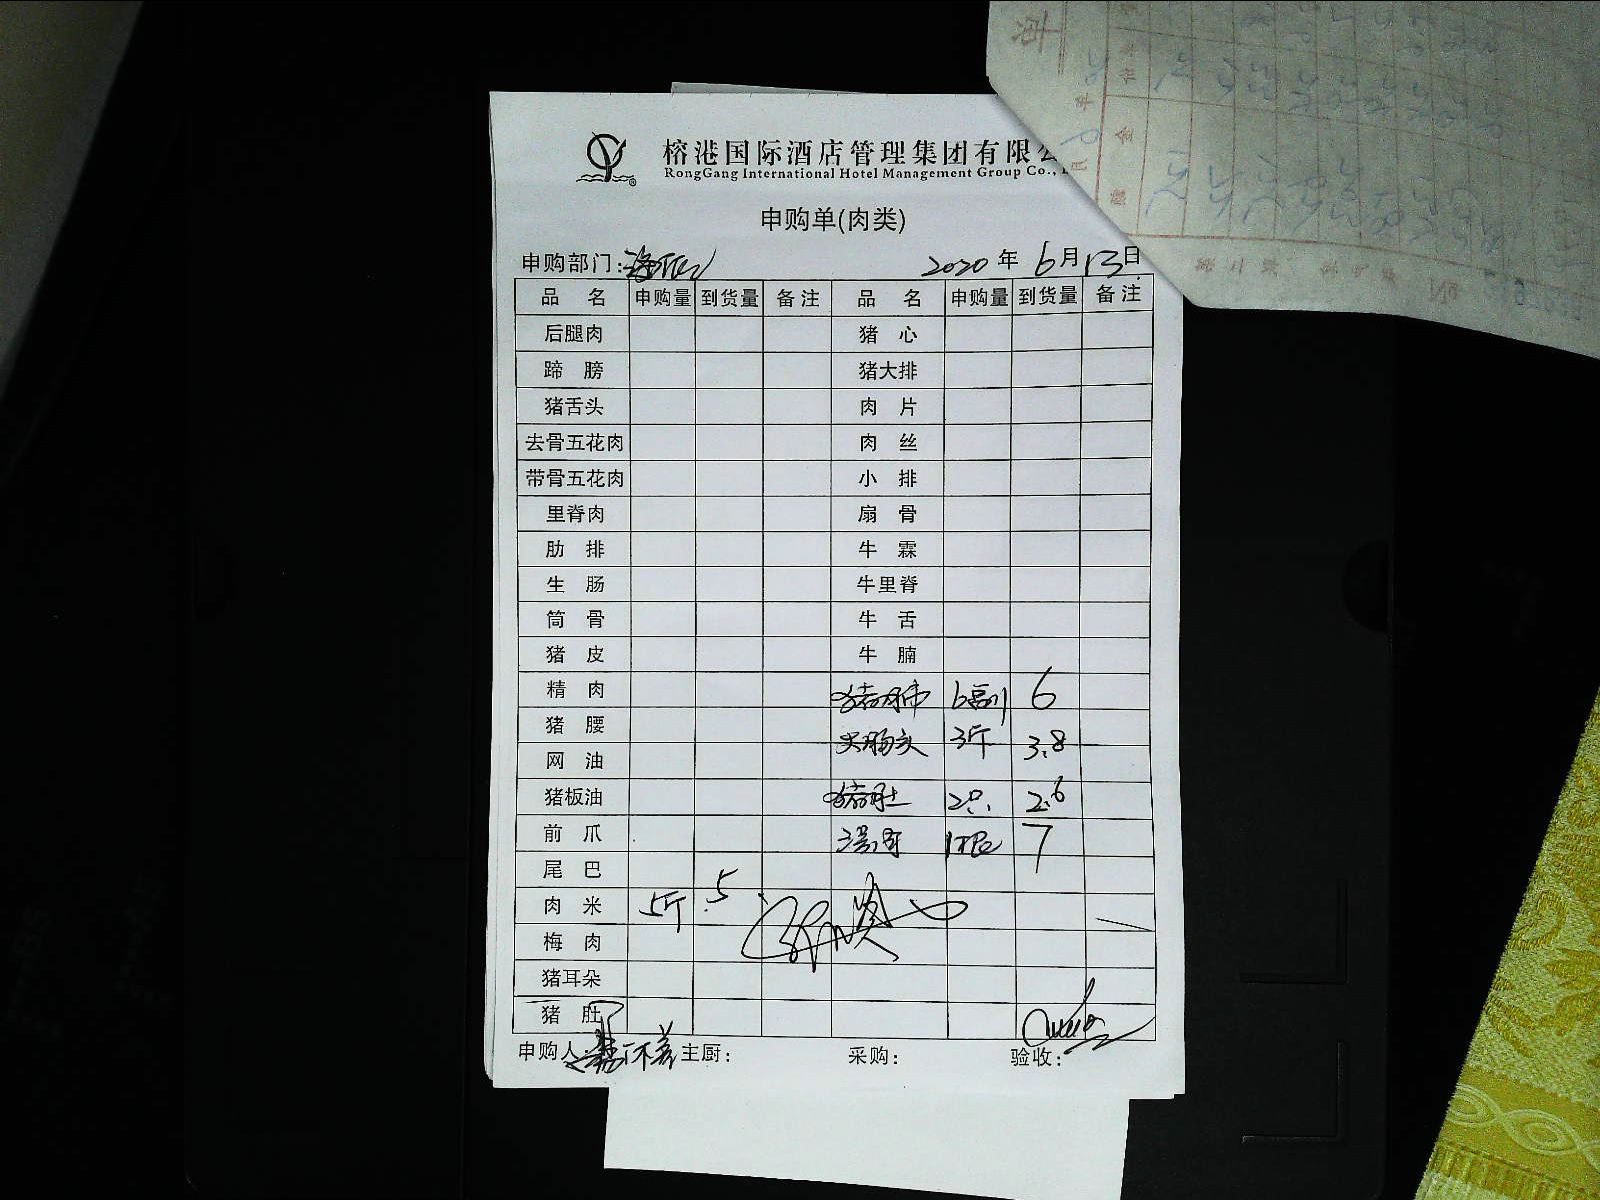 榕港国际酒店管理集团有限公
RongGang International Hotel Management Group Co.,
申购单(肉类)
申购部门: 2020 年 6 月 13 日
品 名 申购量 到货量 备注 品 名 申购量 到货量 备注
后腿肉 猪 心
蹄 膀 猪大排
猪舌头 肉 片
去骨五花肉 肉 丝
带骨五花肉 小 排
里脊肉 扇 骨
肋 排 牛 霖
生 肠 牛里脊
筒 骨 牛 舌
猪 皮 牛 腩
精 肉 猪肺 6副 6
猪 腰 大肠头 3斤 3.8
网 油
猪板油 猪肚 2只 2.6
前 爪 1根 7
尾 巴
肉 米 5斤 5
梅 肉
猪耳朵
猪 肚
申购人: 主厨: 采购: 验收: